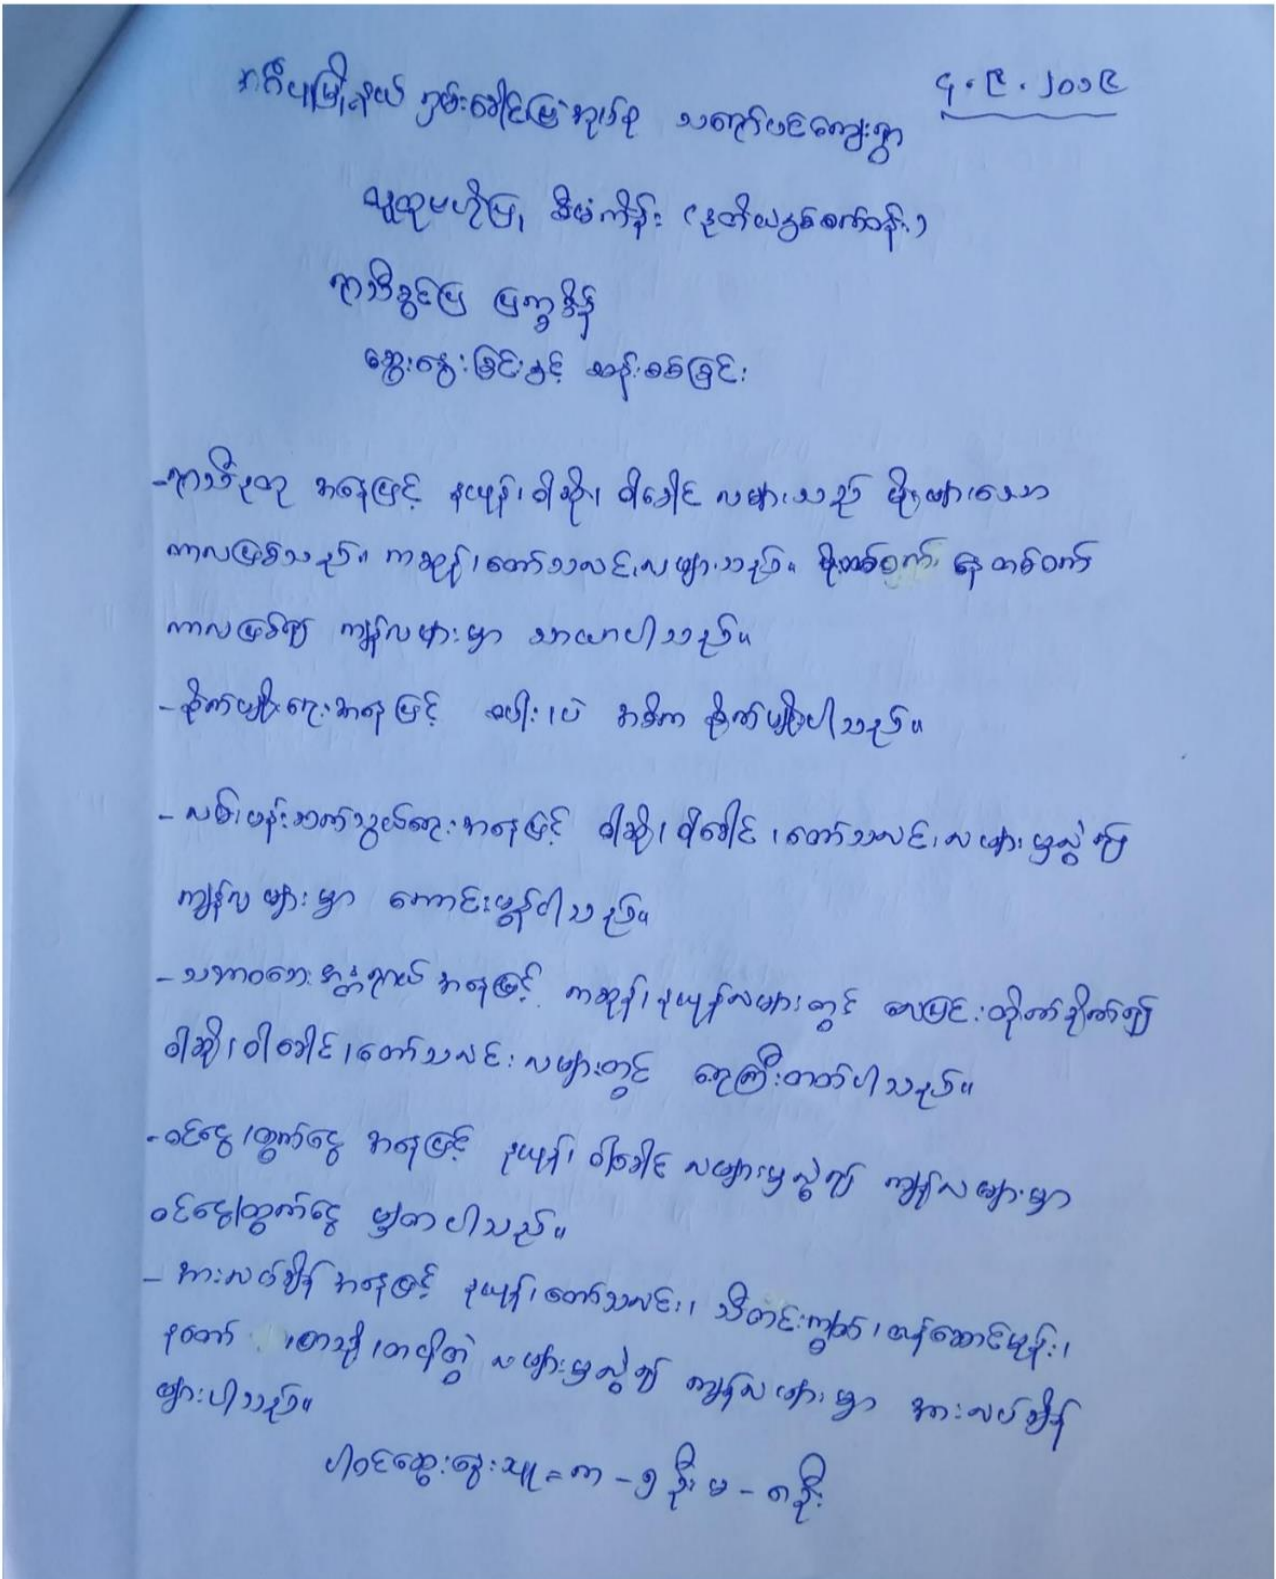 ၄.၉.၂၀၁၉
အင်္ဂပူမြို့နယ် ကွမ်းခေါင်မြဲအုပ်စု သရော်ပင်ကျေးရွာ
လူထုဗဟိုပြု စီမံကိန်း (ဒုတိယနှစ်စက်ဝန်း)
ရာသီခွင်ပြ ပြက္ခဒိန်
ဆွေးနွေးခြင်းနှင့် ဆန်းစစ်ခြင်း
-ရာသီဥတု အနေဖြင့် နယုန်၊ ဝါဆို၊ ဝါခေါင် လများသည် မိုးများသော
ကာလဖြစ်သည်။ ကဆုန်၊ တော်သလင်းလများသည်။ မိုးတစ်ဝက် နေတစ်ဝက်
ကာလဖြစ်၍ ကျန်လများမှာ သာယာပါသည်။
- စိုက်ပျိုးရေးအနေဖြင့် စပါး၊ ပဲ အဓိက စိုက်ပျိုးပါသည်။
- လမ်းပန်းဆက်သွယ်ရေးအနေဖြင့် ဝါဆို၊ ဝါခေါင်၊ တော်သလင်းလများမှလွဲ၍
ကျန်လများမှာ ကောင်းမွန်ပါသည်။
- သဘာဝဘေးအန္တရာယ် အနေဖြင့် ကဆုန်၊ နယုန်လများတွင် လေပြင်းတိုက်ခိုက်၍
ဝါဆို၊ ဝါခေါင်၊ တော်သလင်းလများတွင် ရေကြီးတတ်ပါသည်။
- ဝင်ငွေ၊ ထွက်ငွေ အနေဖြင့် နယုန်၊ ဝါခေါင် လများမှလွဲ၍ ကျန်လများမှာ
ဝင်ငွေ၊ ထွက်ငွေ မျှတပါသည်။
- အားလပ်ချိန် အနေဖြင့် နယုန်၊ တော်သလင်း၊ သီတင်းကျွတ်၊ တန်ဆောင်မုန်း၊
နတော် ၊ ပြာသို၊ တပို့တွဲ လများမှလွဲ၍ ကျန်လများမှာ အားလပ်ချိန်
များပါသည်။
ပါဝင်ဆွေးနွေးသူ = ကျ - ၅ ဦး မ - ၈ ဦး